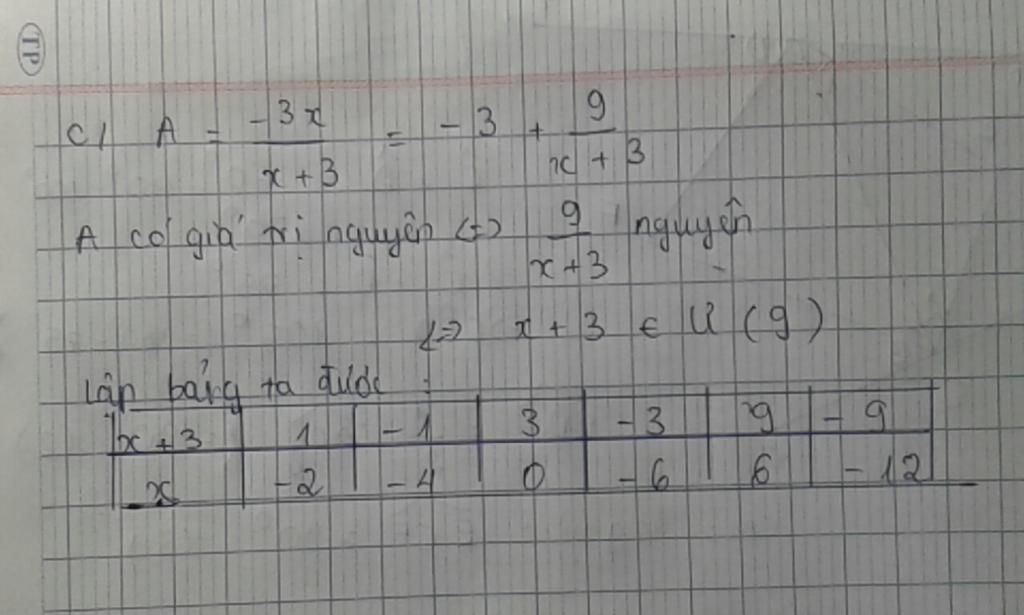 TP
c/ A = -3x / x+3 = -3 + 9 / x+3
A có giá trị nguyên <=> 9 / x+3 nguyên
<=> x+3 ∈ Ư (9)
Lập bảng ta được :
x+3 1 -1 3 -3 9 -9
x -2 -4 0 -6 6 -12